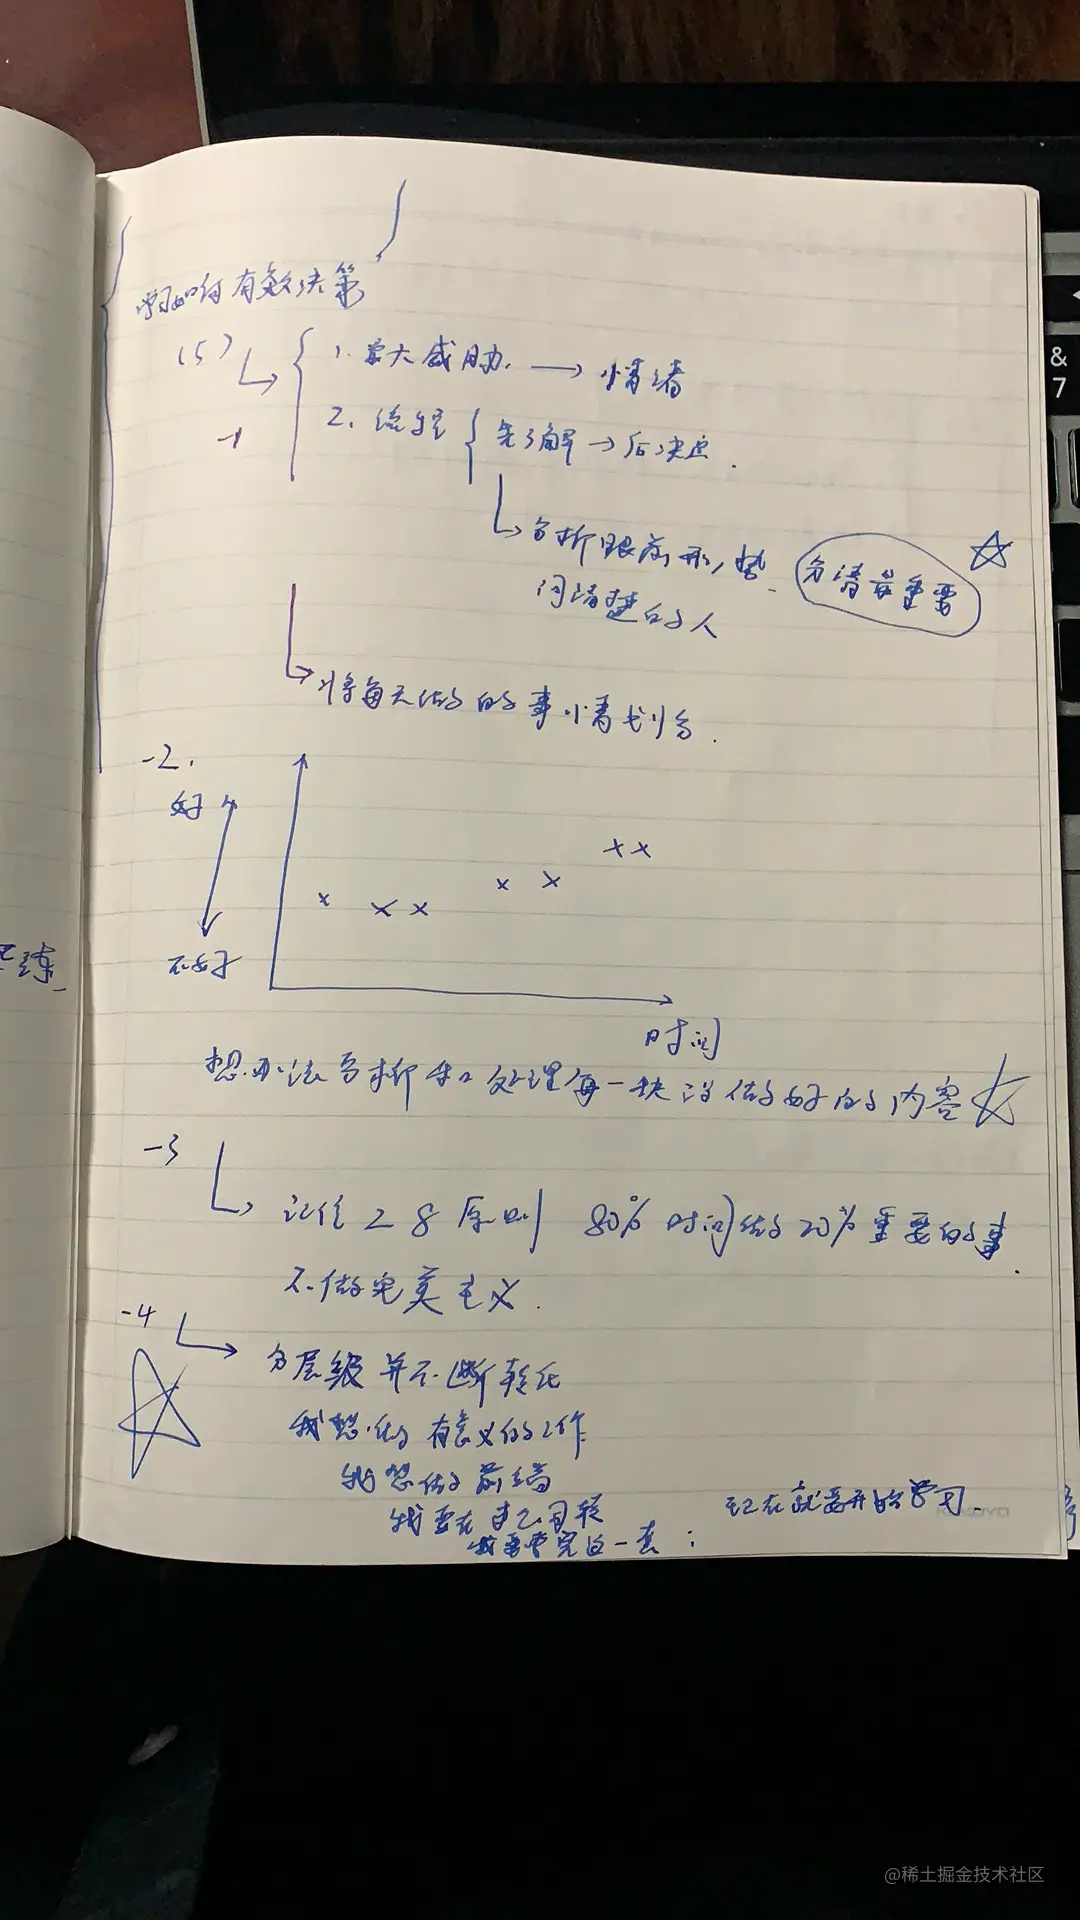 学习如何有效决策
(5)
1. 最大威胁. → 情绪
-1
2. 流程 先了解 → 后决定.
分析眼前形势. 分清最重要
问清楚的人
将每天做的事情划分.
-2.
好
不好
时间
想办法分析和处理每一块没做好的内容
-3
记住28原则 80%时间做20%重要的事.
不做完美主义.
-4
分层级并不断转化
我想做有意义的工作
我想做前端
我要在
现在就要开始学习.
一套:
KOKUYO
&
7
@稀土掘金技术社区